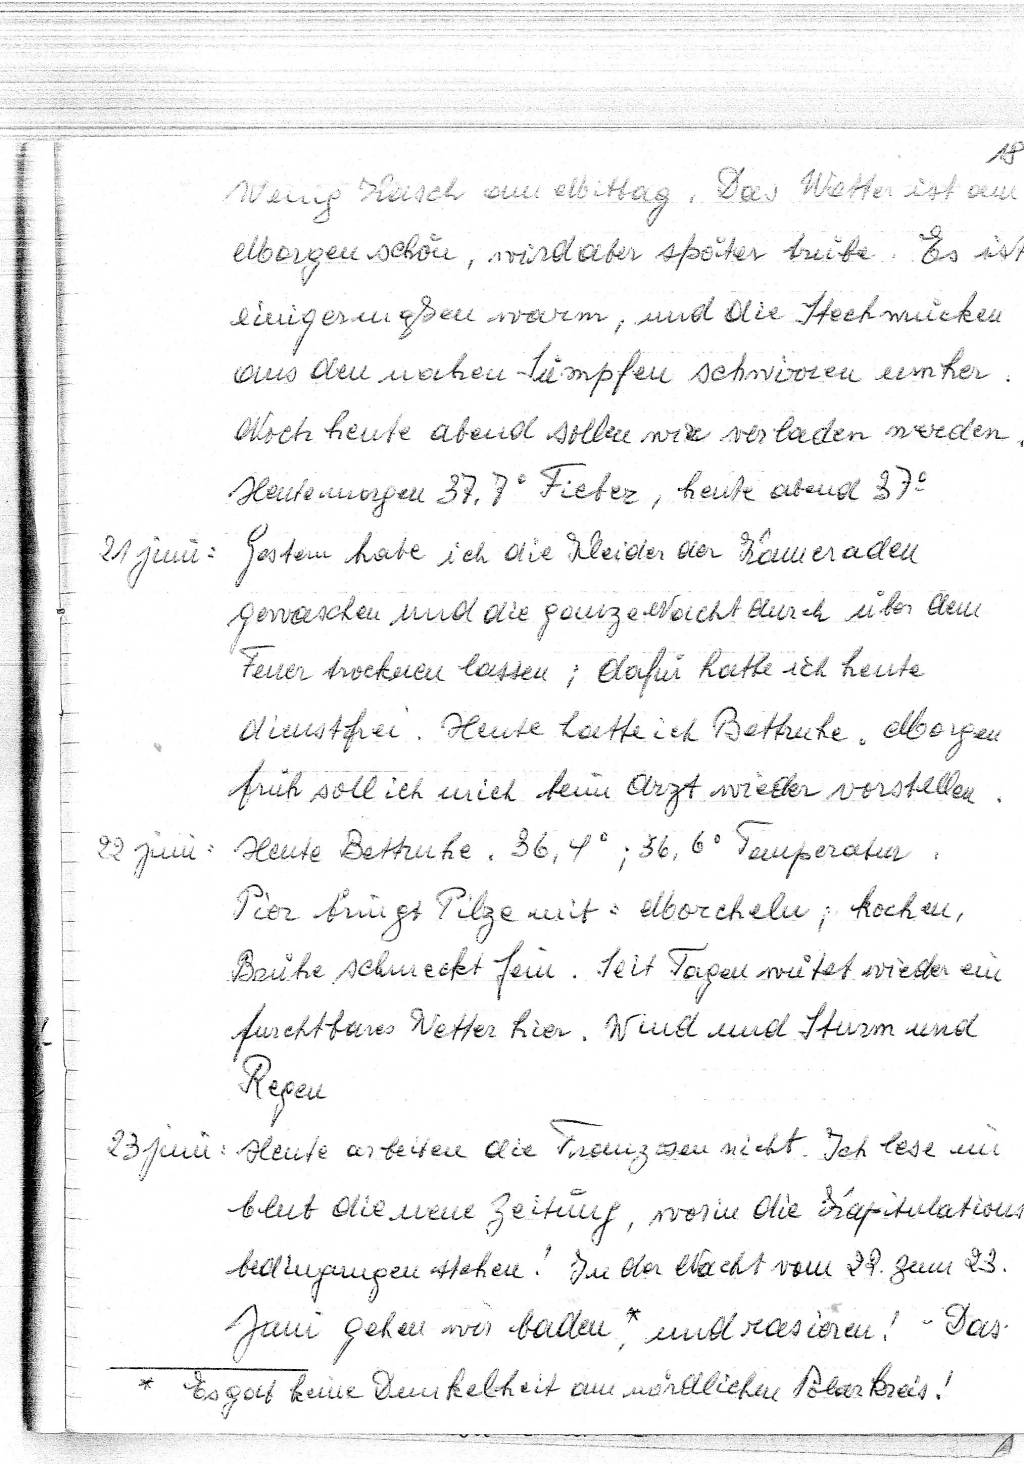 18
Wenig Kasch am Mittag. Das Wetter ist am
Morgen schön, wird aber später trübe. Es ist
einigermaßen warm, und die Stechmücken
aus den nahen Sümpfen schwirren umher.
Noch heute abend sollen wir verladen werden.
Heute morgen 37,7° Fieber, heute abend 37°
21 juni: Gestern habe ich die Kleider der Kameraden
gewaschen und die ganze Nacht durch über dem
Feuer trocknen lassen; dafür hatte ich heute
dienstfrei. Heute hatte ich Bettruhe. Morgen
früh soll ich mich beim Arzt wieder vorstellen.
22 juni: Heute Bettruhe. 36,4°; 36,6° Temperatur.
Pier bringt Pilze mit: Morcheln; kochen,
Brühe schmeckt fein. Seit Tagen wütet wieder ein
furchtbares Wetter hier. Wind und Sturm und
Regen
23 juni: Heute arbeiten die Franzosen nicht. Ich lese im
blut die neue Zeitung, worin die Kapitulations
bedingungen stehen! In der Nacht vom 22. zum 23.
Juni gehen wir baden,* und rasieren! - Das
* Es gab keine Dunkelheit am nördlichen Polarkreis!